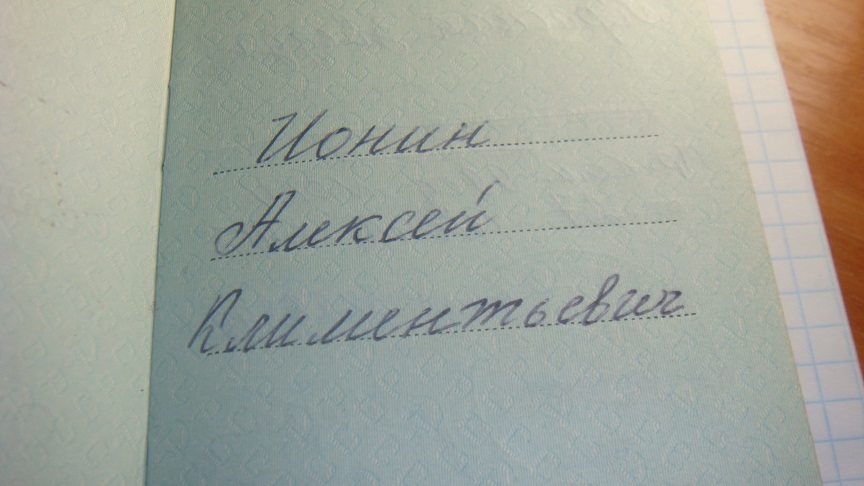 Ионин
Алексей
Климентьевич